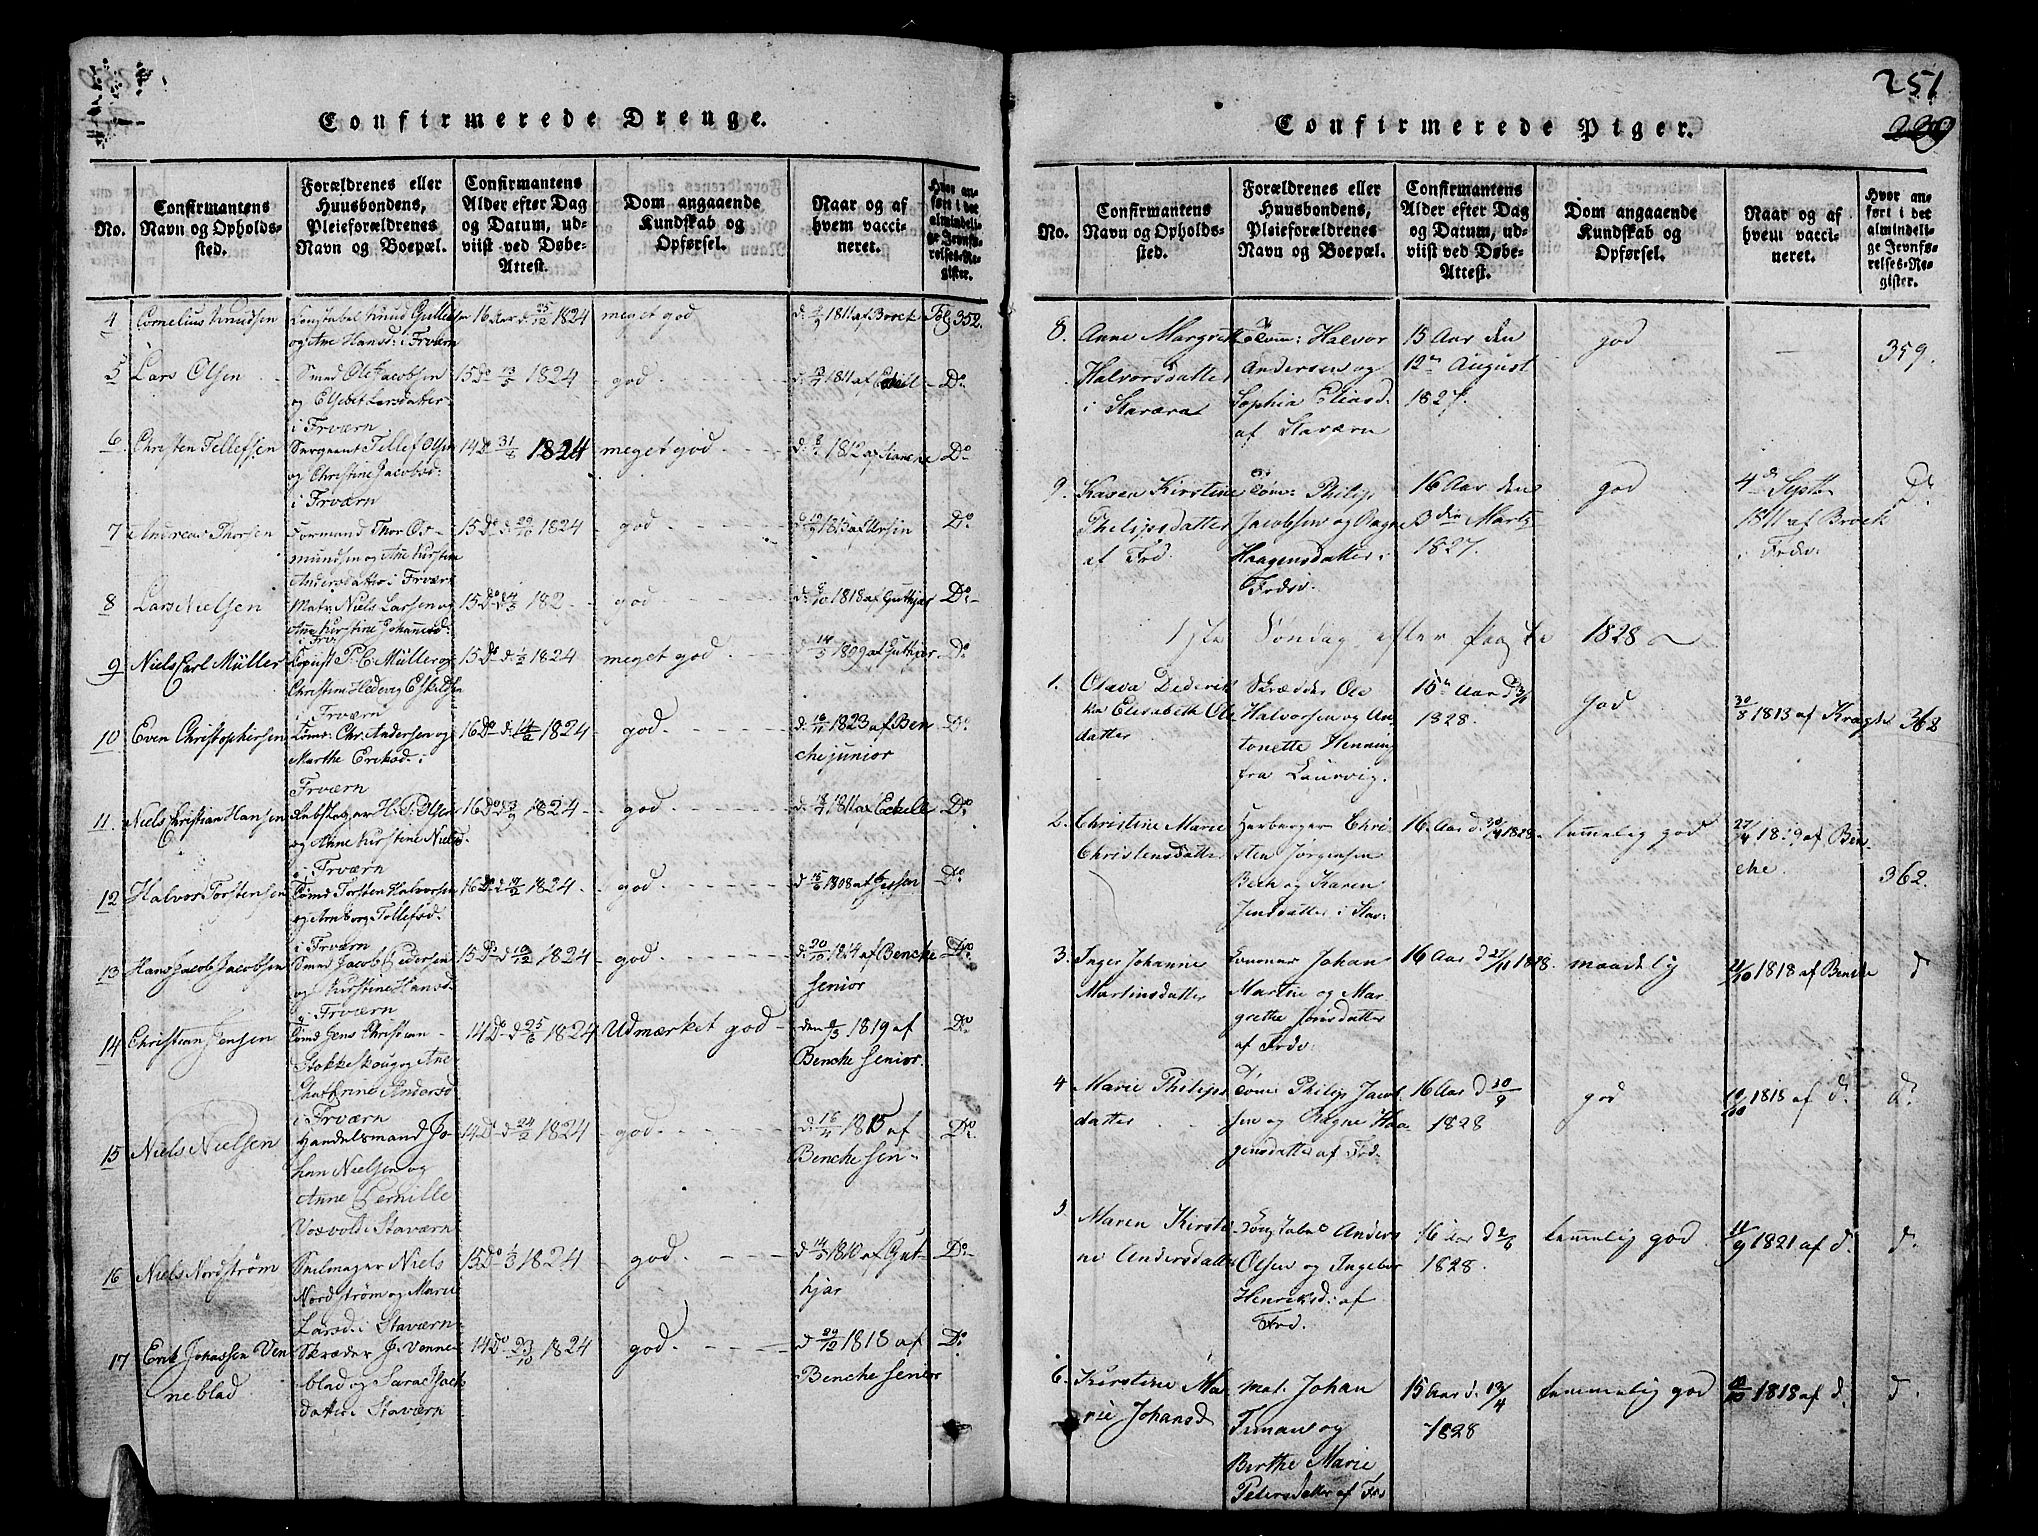 Confirmerede Drenge.
No.
Confirmantens
Navn og Opholds-
sted.
Forældrenes eller
Huusbondens,
Pleieforældrenes
Navn og Boepæl.
Confirmantens
Alder efter Dag
og Datum, ud-
viist ved Døbe-
Attest.
Dom angaaende
Kundskab og
Opførsel.
Naar og af
hvem vacci-
neret.
Hvor an-
ført i det
almindeli-
ge Jevnfø-
relses-Re-
gister.
4
Cornelius Knudsen
Constabel Knud Gullesen
og Ane Hansd: i Frværn
16 Aar d. 25/12 1824
meget god
1811 af Bock
Fol 352.
5
Lars Olsen
Smed Ole Jacobsen
og Elsebet Larsdatter
i Frværn
15 Do 13/5 1824
god
1811 af Eckell
Do
6
Christen Tellefsen
Sergeant Tellef Olsen
og Christine Jacobsd:
i Frværn
14 Do 31/8 1824
meget god
1812 af
Do
7
Andreas Thorsen
Formand Thor Os-
mundsen og Ane Kirstine
Andersdatter i Frværn
15 Do d 29/10 1824
god
1813 af
Do
8
Lars Nielsen
Matr. Niels Larsen og
Ane Kirstine Johannesd:
i Frv:
15 Do 182
god
1818 af Guthjar
Do
9
Niels Carl Müller
Copiist P. C. Müller og
Christine Hedevig Eskildsen
i Frværn
15 Do d. 1/2 1824
meget god
d. 14/5 1809 af Guthjar
Do
10
Even Christophersen
Tømr. Chr. Andersen og
Marthe Eriksd. i
Frværn
16 Do d. 14/2 1824
god
d. 16/11 1823 af Ben
che junior
Do
11
Niels Christian Hansen
Rebslager H. P. Olsen
og Anne Kirstine Nielsd.
i Frværn
16 Do d 3/9 1824
god
1811 af Eckell
Do
12
Halvor Torstensen
Tømd Torsten Halvorsen
og Anborg Tollefsd.
i Frværn
16 Do 1824
god
1808 af Jessen
Do
13
Hans Jacob Jacobsen
Smed Jacob Pedersen
og Kirstine Hansd.
i Frværn
15 Do d 10/12 1824
god
d: 20/10 1814 af Bencke
Senior
Do
14
Christian Jensen
Tømd Jens Christian
Stokke Skoug og Ane
Chathrine Andersd
i Frværn
14 Do d 25/6 1824
Udmærket god
den 9/3 1819 af
Bencke Senior
Do
15
Niels Nielsen
Handelsmand Jo-
han Nielsen og
Anne Pernille
Voxvold i Staværn
14 Do d 24/2 1824
god
d. 16/4 1815 af
Bencke Sen-
Do
16
Niels Nordstrøm
Seilmager Niels
Nordstrøm og Marie
Larsd. i Staværn
15 Do 1/3 1824
god
1810 af Gut-
hjar
Do
17
Erik Johassen Ven
neblad
Skræder J. Venne-
blad og Sara Isack
datter i Staværn
14 Do 23/10 1824
god
d 29/12 1818 af
Bencke Senior
Do
251
239
Confirmerede Piger.
No.
Confirmantens
Navn og Opholds-
sted.
Forældrenes eller
Huusbondens,
Pleieforældrenes
Navn og Boepæl.
Confirmantens
Alder efter Dag
og Datum, ud-
viist ved Døbe-
Attest.
Dom angaaende
Kundskab og
Opførsel.
Naar og af
hvem vacci-
neret.
Hvor an-
ført i det
almindeli-
ge Jevnfø-
relses-Re-
gister.
8.
Anne Margreth
Halvorsdatter
i Staværn
Tøm: Halvor
Andersen og
Sophia Eliasd.
af Staværn
15 Aar den
12te August
1827.
god
359.
9.
Karen Kirstine
Philipsdatter
af Frd.
Tøm: Philip
Jacobsen og Ragne
Haagensdatter i
Frdsv.
16 Aar den
3die Marts
1827.
god
4de Septb
1811 af Brock
i Frdv.
Do
1ste Søndag efter Paaske 1828
1.
Olava Dederik
ka Elisabeth Ols
datter
Skrædder Ole
Halvorsen og An-
tonette Henning
fra Laurvig.
15 Aar d. 3/1
1828.
god
30/8 1813 af Kragh
362
2.
Christine Marie
Christensdatter
Herberger Chri-
sten Jørgensen
Bech og Karen
Jensdatter i Stav:
16 Aar d. 30/4 1828.
temmelig god
27/4 1819 af Ben
che
362.
3.
Inger Johanne
Martinsdatter
Johan
Martin og Mar-
grethe
af Frdv:
16 Aar d 27/11 1828.
maadelig
1818 af Bencke
d
4
Marie Philips
datter
Tøm: Philip Jacob-
sen og Ragne Haa-
gensdatter af Frd.
16 Aar d 30/9
1828
god
1818 af d.
do
5.
Maren Kirsti
ne Andersdatter
Anders
Olsen og Ingebor
Henriksd: af
Frd.
16 Aar d 2/6
1828.
temmelig god
11/9 1821 af d.
d.
6.
Kirstine Ma
rie Johansd
Mat. Johan
Timan og
Berthe Marie
Petersdatter af Frd
15 Aar d. 19/4
1828
temmelig god
1818 af d.
d.